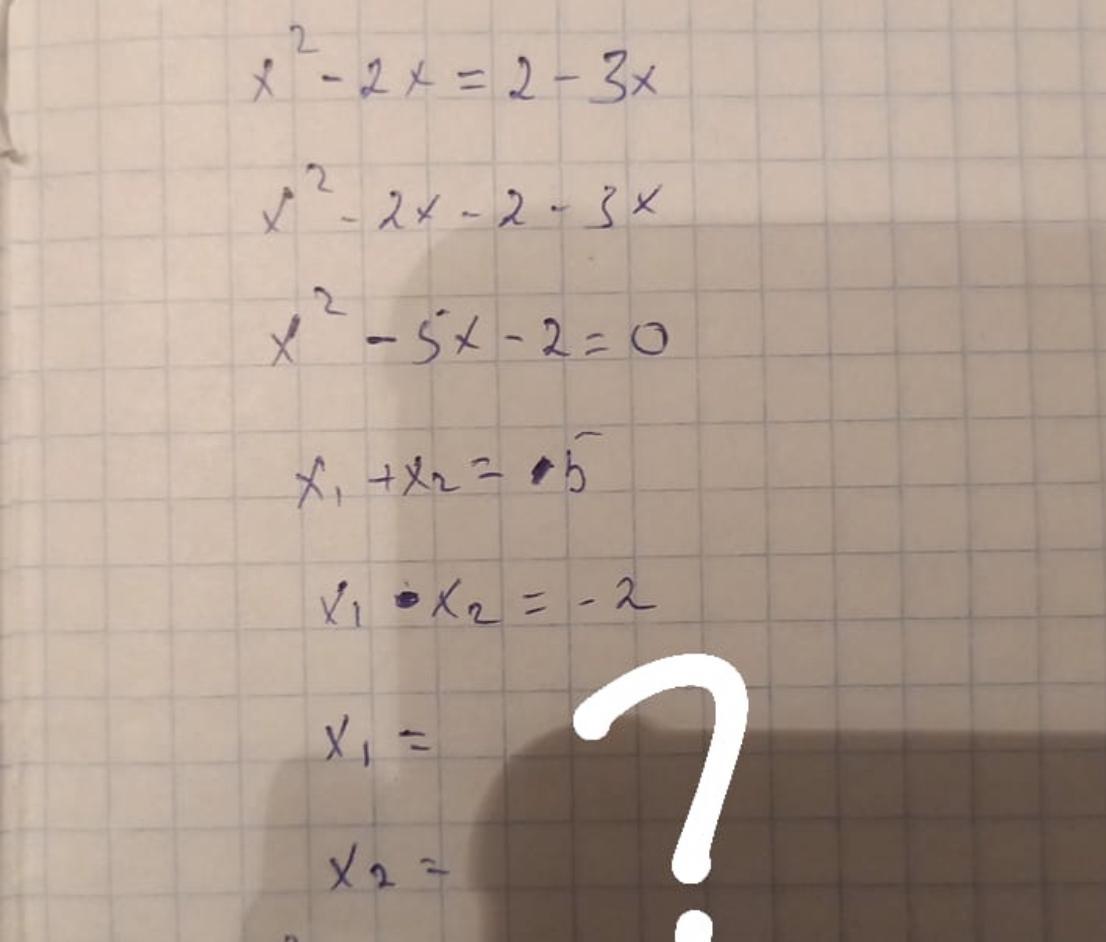 x² - 2x = 2 - 3x
x² - 2x - 2 - 3x
x² - 5x - 2 = 0
x₁ + x₂ = 5
x₁ • x₂ = - 2
x₁ =
x₂ =
?